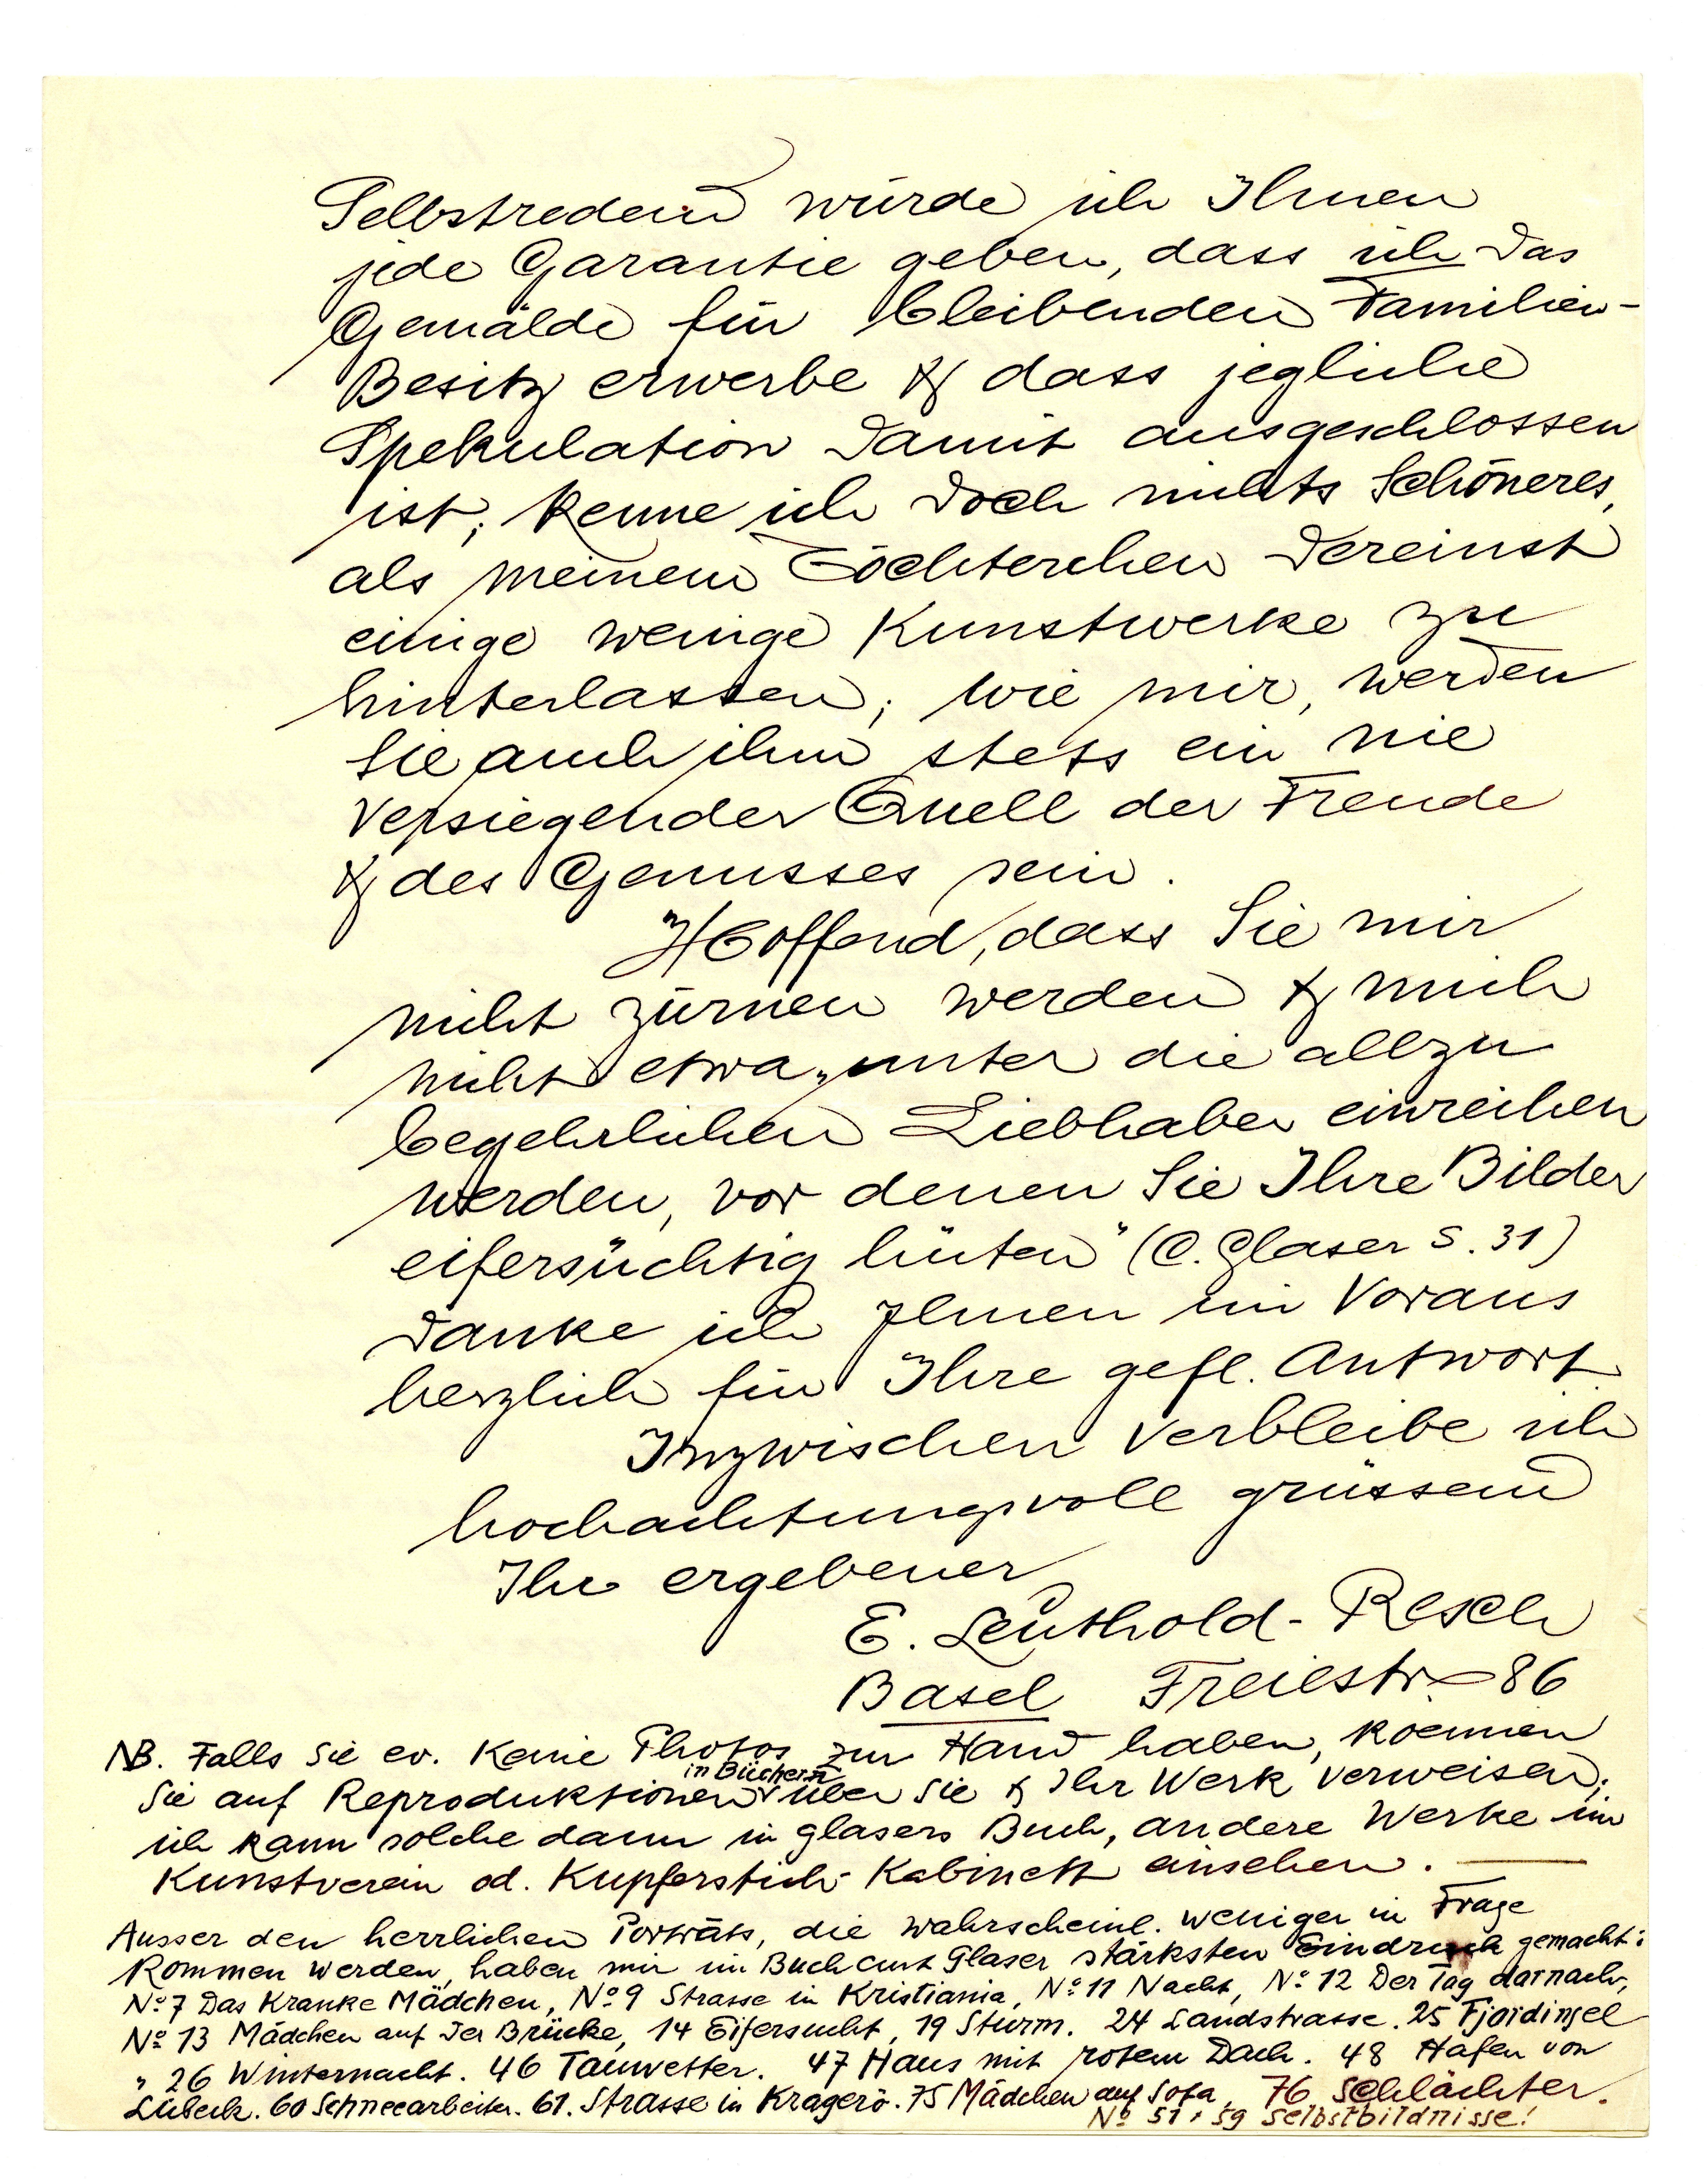 Selbstredend würde ich Ihnen
jede Garantie geben, dass ich das
Gemälde für bleibenden Familien-
Besitz erwerbe & dass jegliche
Spekulation damit ausgeschlossen
ist; kenne ich doch nichts Schöneres,
als meinem Töchterchen dereinst
einige wenige Kunstwerke zu
hinterlassen; wie mir, werden
sie auch ihm stets ein nie
versiegender Quell der Freude
& des Genusses sein.
Hoffend, dass Sie mir
nicht zürnen werden & mich
nicht etwa „unter die allzu
begehrlichen Liebhaber einreihen
werden, vor denen Sie Ihre Bilder
eifersüchtig hüten" (C. Glaser S. 31)
danke ich Ihnen im Voraus
herzlich für Ihre gefl. Antwort.
Inzwischen verbleibe ich
hochachtungsvoll grüssend
Ihr ergebener
E. Leuthold-Resch
Basel Freiestr 86
NB. Falls Sie ev. keine Photos zur Hand haben, koennen
in Büchern
Sie auf Reproduktionen über Sie & Ihr Werk verweisen;
ich kann solche dann in Glasers Buch, andere Werke im
Kunstverein od. Kupferstich-Kabinett ansehen. —
Ausser den herrlichen Porträts, die wahrscheinl. weniger in Frage
kommen werden, haben mir im Buch Curt Glaser stärksten Eindruck gemacht:
No 7 Das Kranke Mädchen, No 9 Strasse in Kristiania, No 11 Nacht, No 12 Der Tag darnach,
No 13 Mädchen auf der Brücke, 14 Eifersucht, 19 Sturm. 24 Landstrasse. 25 Fjordinsel
" 26 Winternacht. 46 Tauwetter. 47 Haus mit rotem Dach. 48 Hafen von
Lübeck. 60 Schneearbeiter. 61. Strasse in Kragerö. 75 Mädchen auf Sofa, 76 Schlächter.
No 51 + 59 Selbstbildnisse!